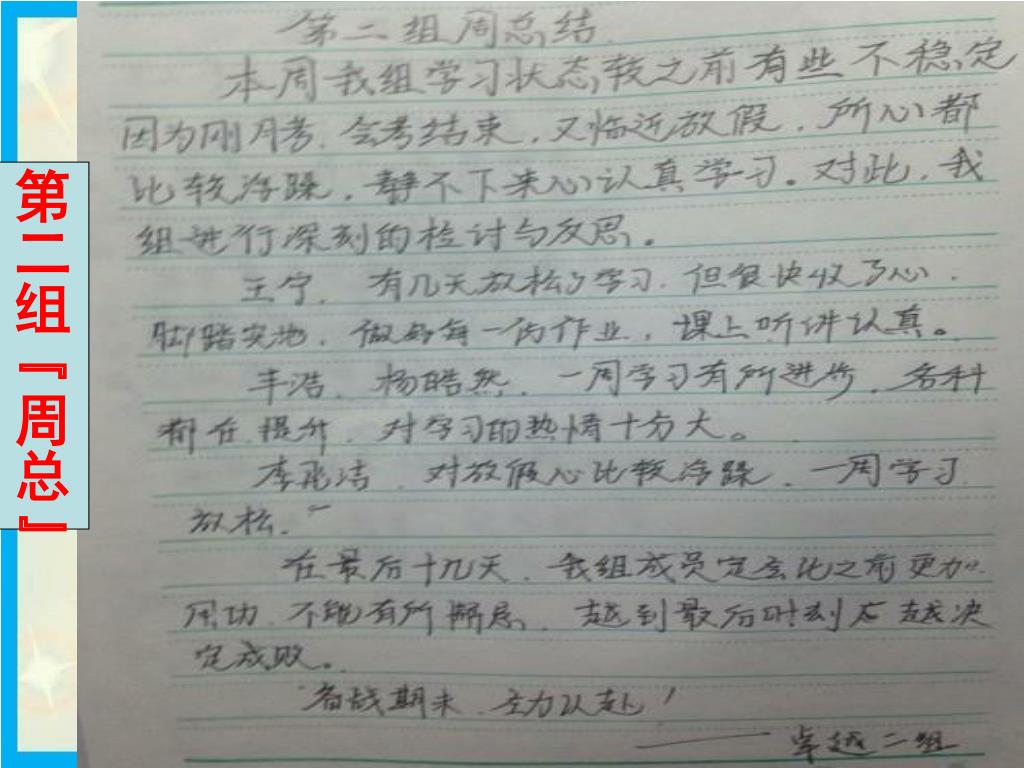 第二组『周总』
第二组周总结
本周我组学习状态较之前有些不稳定
因为刚月考、会考结束，又临近放假，所心都
比较浮躁，静不下来心认真学习。对此，我
组进行深刻的检讨与反思。
王宁，有几天放松了学习，但很快收了心，
脚踏实地，做好每一份作业，课上听讲认真。
丰浩、杨皓然，一周学习有所进步，各科
都在提升，对学习的热情十分大。
李兆洁，对放假心比较浮躁，一周学习
放松。
在最后十几天，我组成员定会比之前更加
用功，不能有所懈怠，越到最后时刻应越决
定成败。
备战期末，全力以赴！
——卓越二组